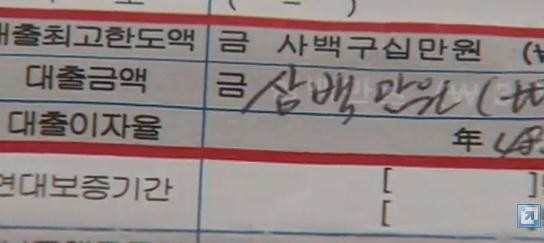 대출최고한도액 금 사백구십만원 (₩
대출금액 금 삼백만원 (₩
대출이자율 年 48.
연대보증기간 [ ]
[